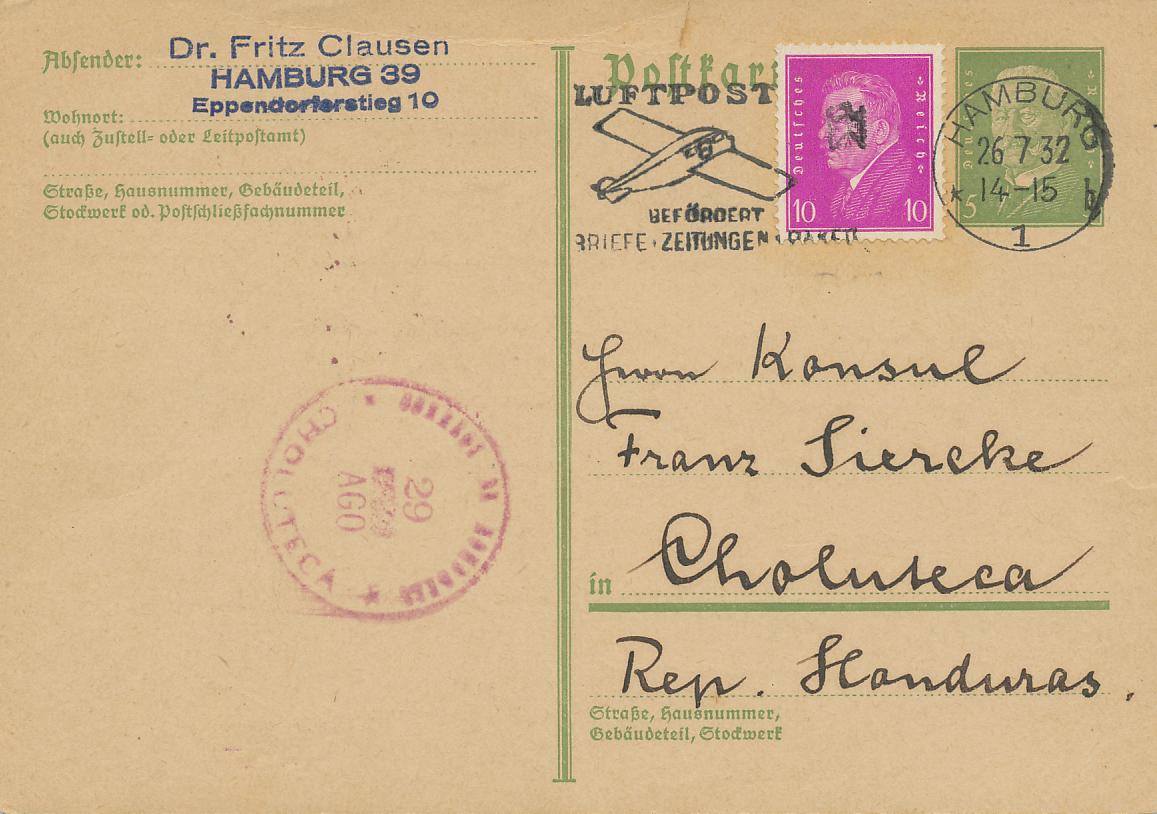 Absender:
Dr. Fritz Clausen
HAMBURG 39
Eppendorferstieg 10
Wohnort:
(auch Zustell- oder Leitpostamt)
Straße, Hausnummer, Gebäudeteil,
Stockwerk od. Postschließfachnummer
Postkar
LUFTPOST
BEFÖRDERT
BRIEFE · ZEITUNGEN ·
Deutsches Reich
10 10
Deutsches Reich
5
HAMBURG
26 7 32
* 14-15 b
1
CHOLUTECA
29
AGO
Herrn Konsul
Franz Siercke
in Choluteca
Rep. Honduras.
Straße, Hausnummer,
Gebäudeteil, Stockwerk